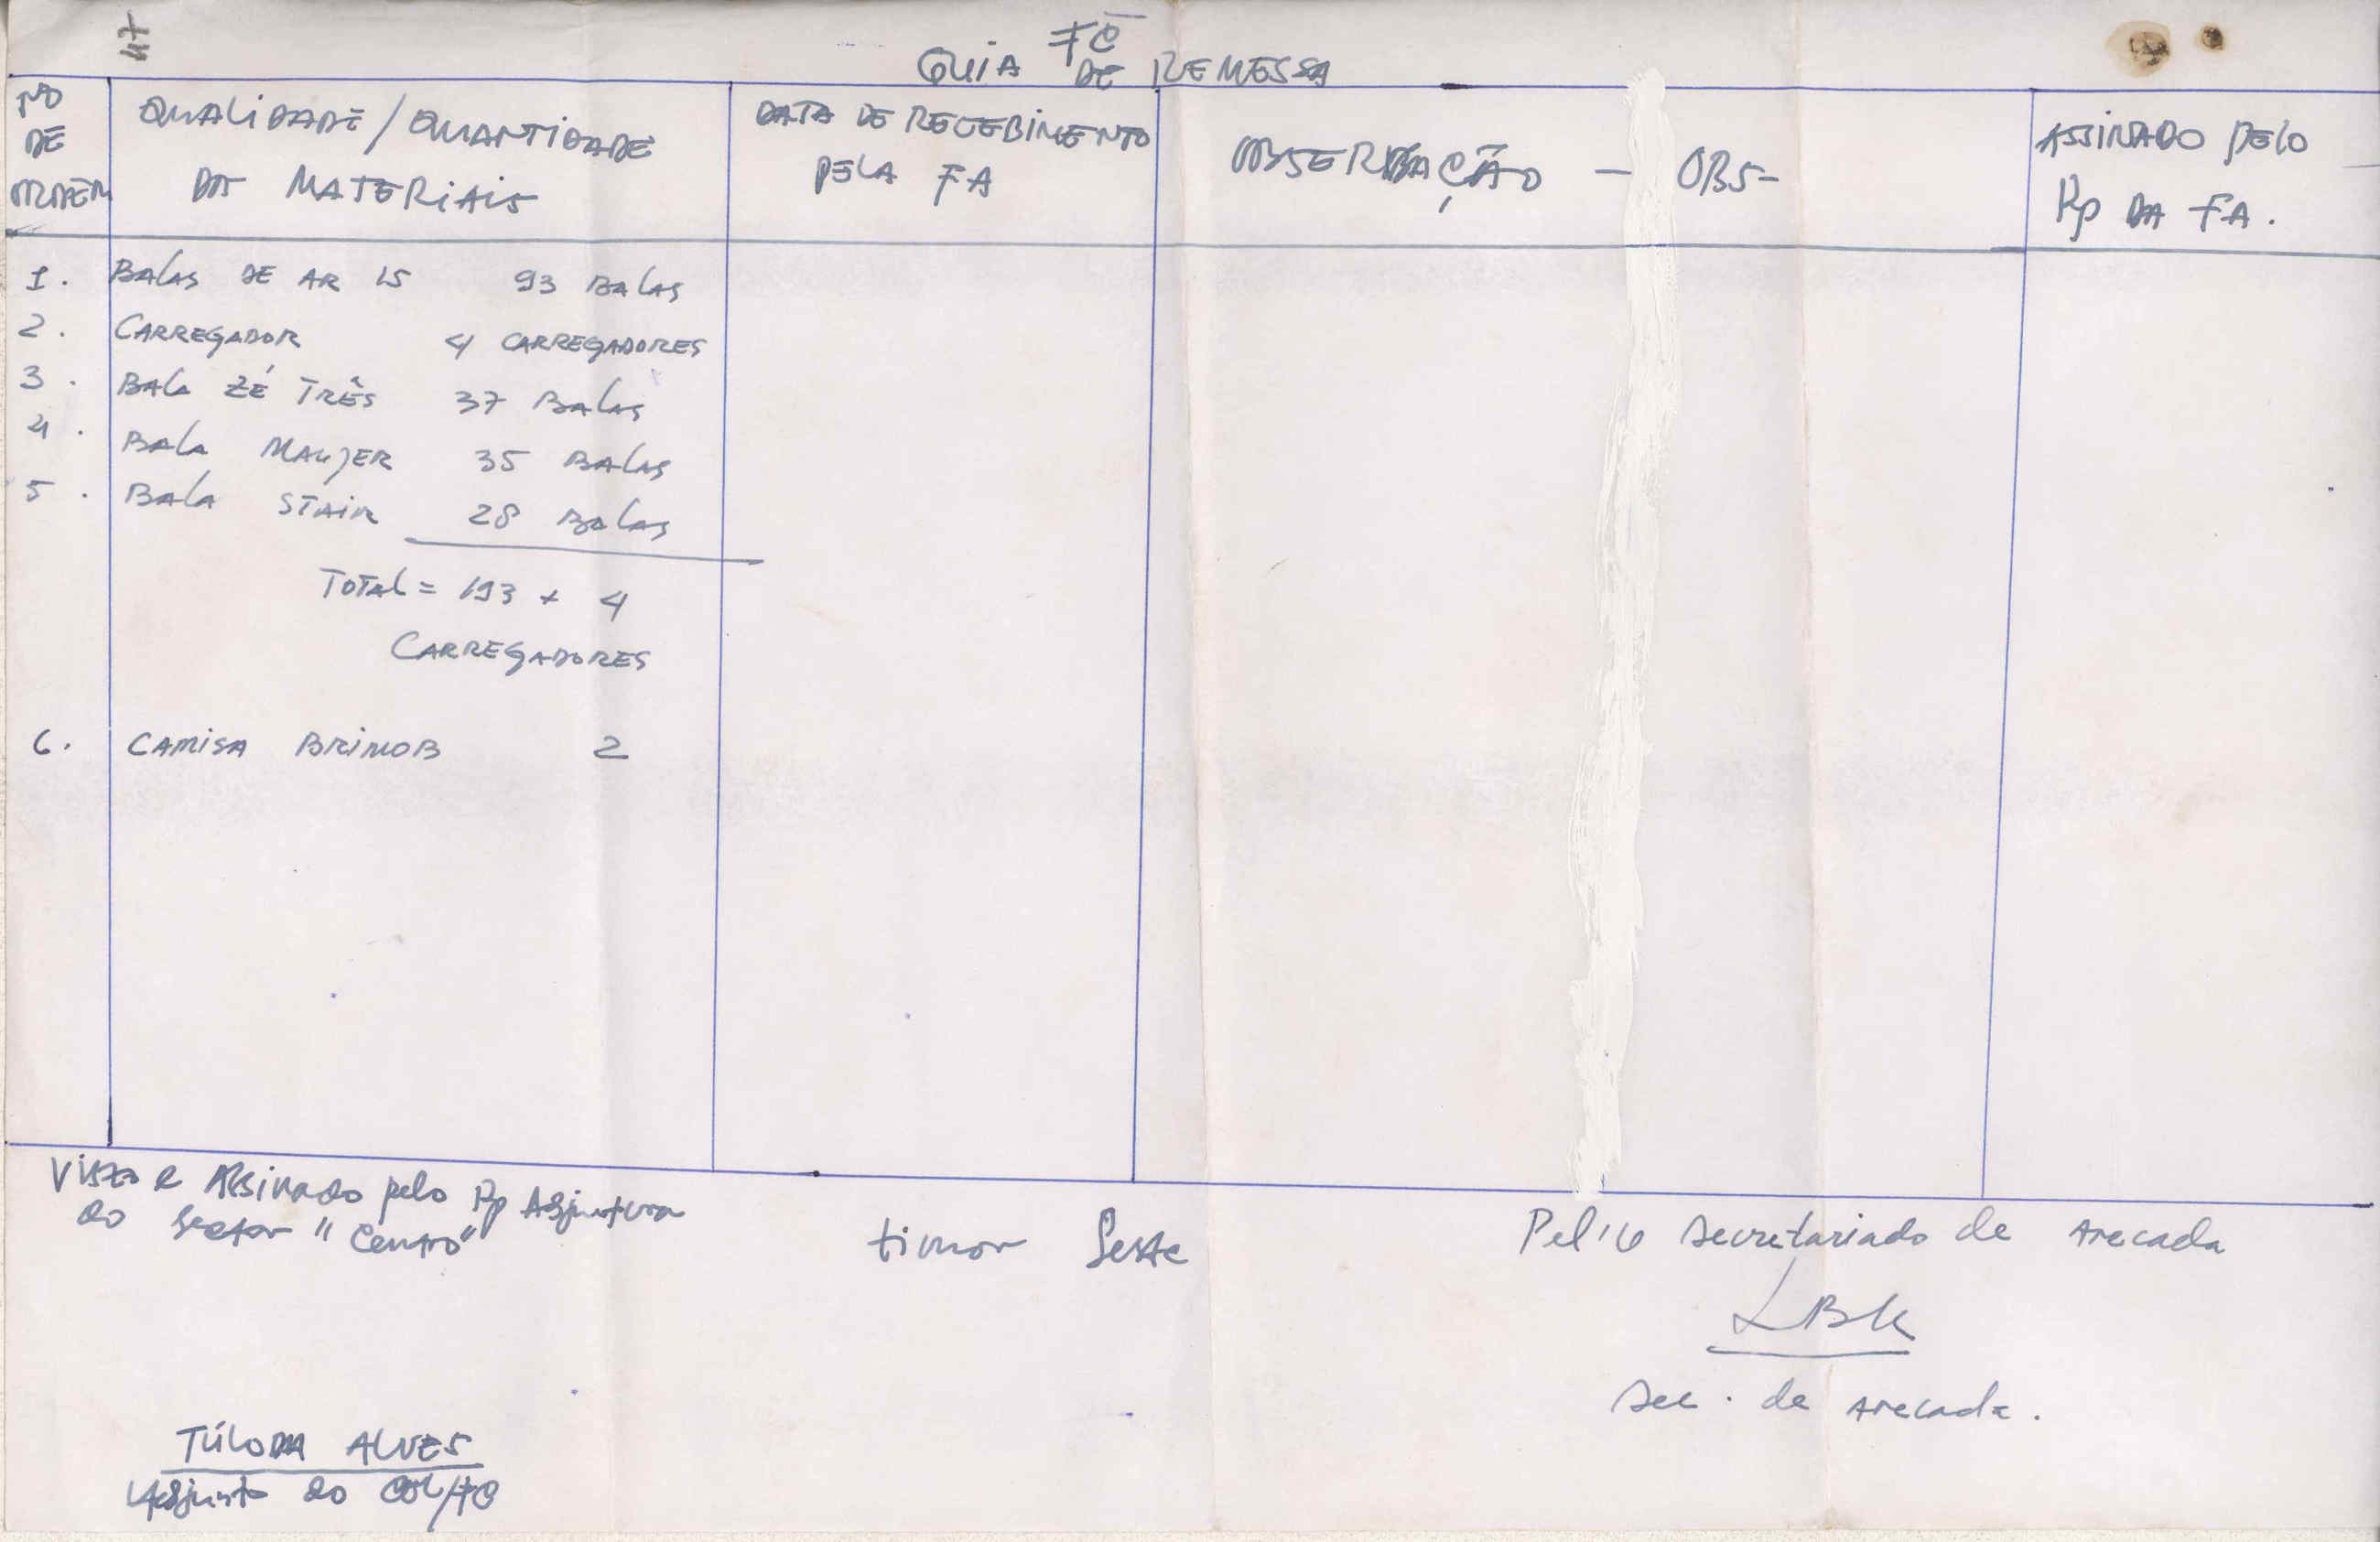 47
FC
GUIA DE REMESSA
Nº DE ORDEM
QUALIDADE/QUANTIDADE
DA MATERIAIS
DATA DE RECEBIMENTO
PELA FA
OBSERVAÇÃO - OBS-
ASSINADO PELO
Rp DA FA.
1. BALAS DE AR 15 93 BALAS
2. CARREGADOR 4 CARREGADORES
3. BALA ZÉ TRÊS 37 BALAS
4. BALA MAUJER 35 BALAS
5. BALA STAIR 28 BALAS
TOTAL = 193 + 4
CARREGADORES
6. CAMISA BRIMOB 2
Visto e Assinado pelo Rp Adjuntura
do Sector "Centro"
timor Leste
Pel'o Secretariado de Arecada
LBK
Sec. de Arecada.
TÚLODA ALVES
Adjunto do